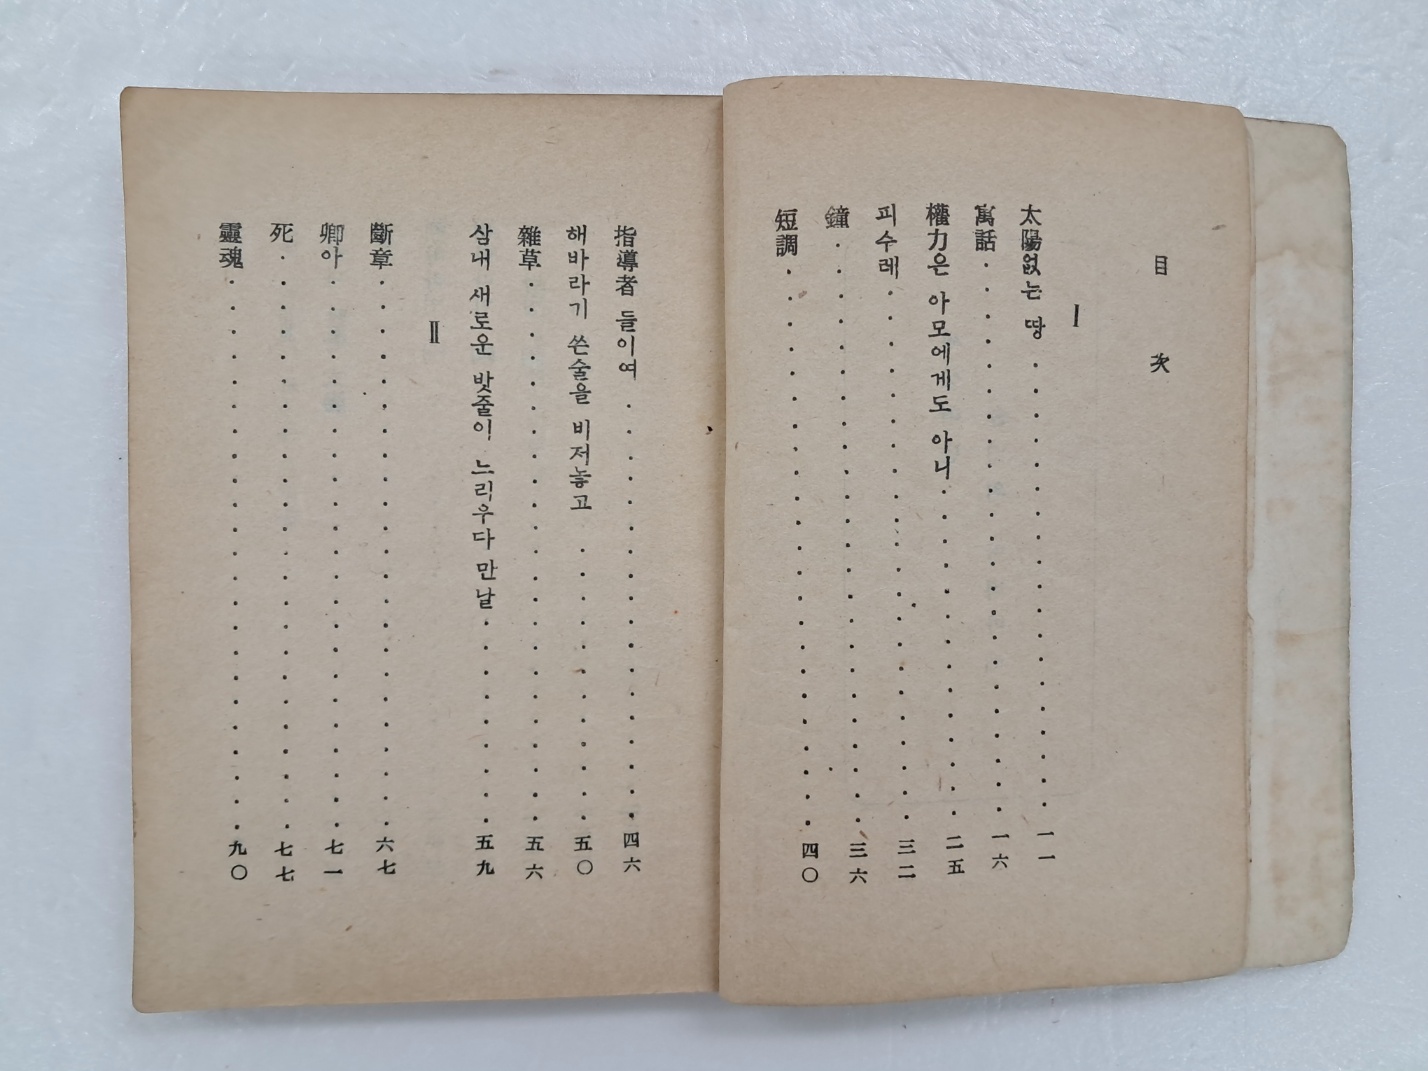 目 次
I
太陽없는 땅 . . . . . . . . . . . . . . . . . . . 一一
寓話 . . . . . . . . . . . . . . . . . . . . . . . 一六
權力은 아모에게도 아니 . . . . . . . . . . . . . . 二五
피수레 . . . . . . . . . . . . . . . . . . . . . . 三二
鐘 . . . . . . . . . . . . . . . . . . . . . . . . 三六
短調 . . . . . . . . . . . . . . . . . . . . . . . 四〇
指導者 들이여 . . . . . . . . . . . . . . . . . . 四六
해바라기 쓴술을 비저놓고 . . . . . . . . . . . . 五〇
雜草 . . . . . . . . . . . . . . . . . . . . . . . 五六
삼내 새로운 밧줄이 느리우다 만날 . . . . . . . . . 五九
II
斷章 . . . . . . . . . . . . . . . . . . . . . . . 六七
卿아 . . . . . . . . . . . . . . . . . . . . . . . 七一
死 . . . . . . . . . . . . . . . . . . . . . . . . 七七
靈魂 . . . . . . . . . . . . . . . . . . . . . . . 九〇